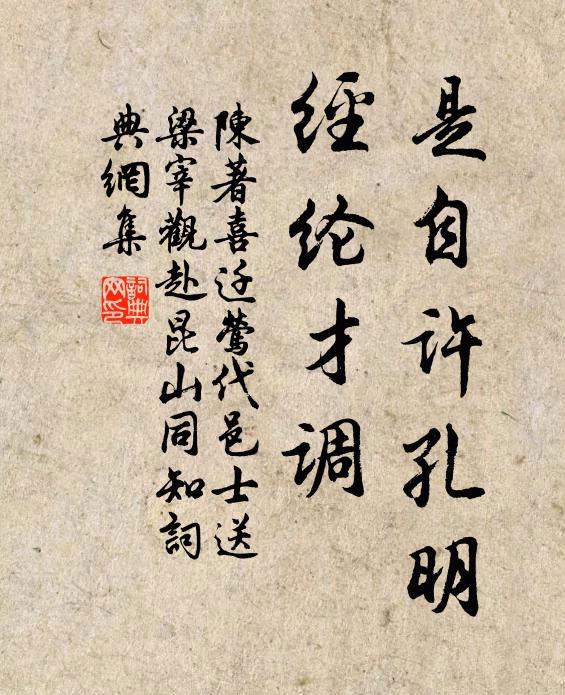 是自许孔明
經纶才调
陳著喜迁鶯代邑士送
梁宰觀赴昆山同知詞
典網集
詞典网印